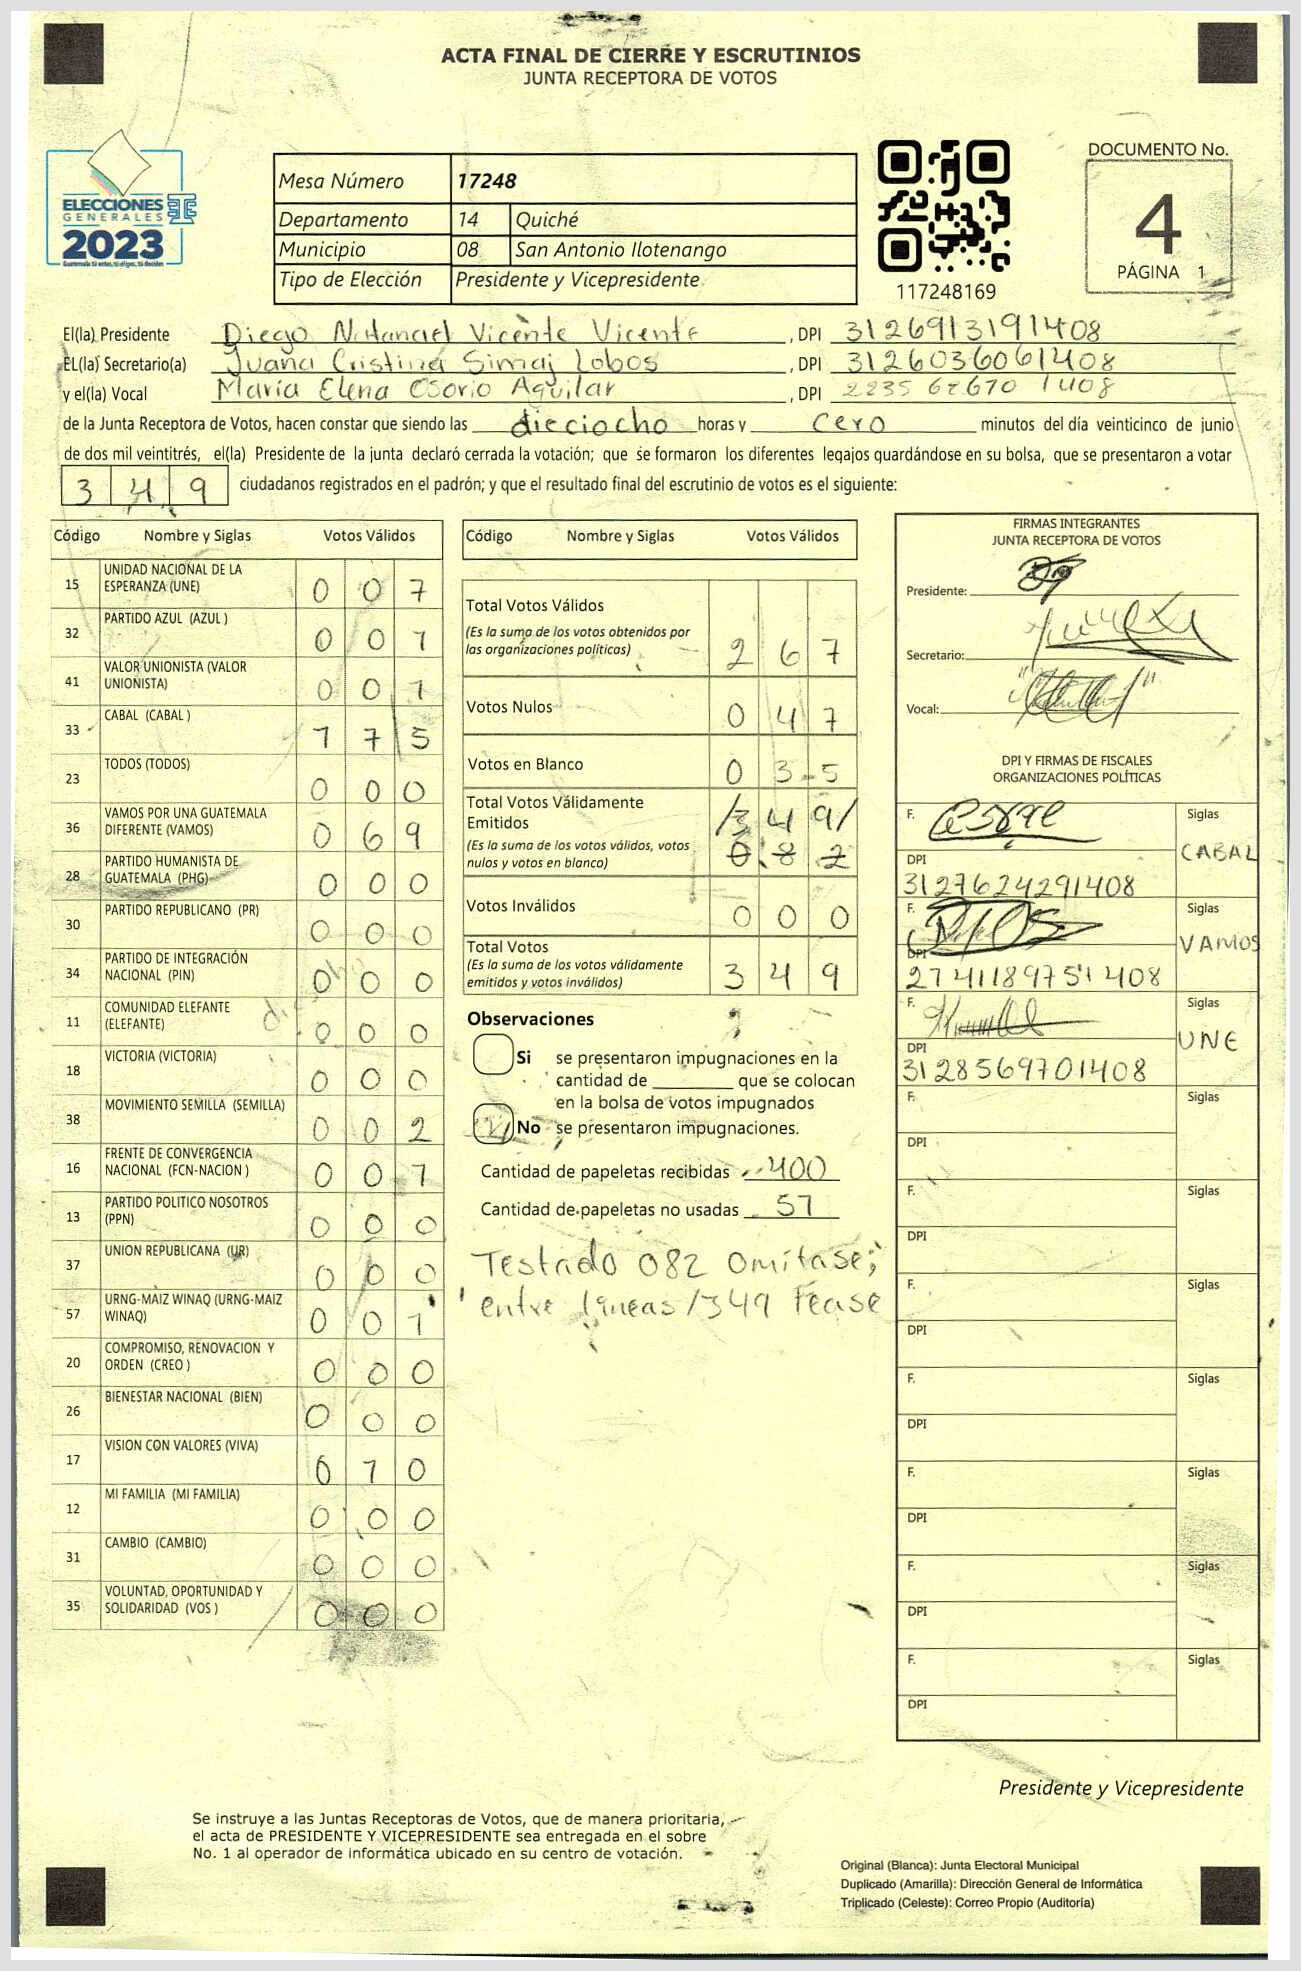 ACTA FINAL DE CIERRE Y ESCRUTINIOS
JUNTA RECEPTORA DE VOTOS
ELECCIONES
GENERALES
2023
Mesa Número 17248
Departamento 14 Quiché
Municipio 08 San Antonio Ilotenango
Tipo de Elección Presidente y Vicepresidente
117248169
DOCUMENTO No.
4
PÁGINA 1
El(la) Presidente Diego Natanael Vicente Vicente, DPI 3126913191408
EL(la) Secretario(a) Juana Cristina Simaj Lobos, DPI 3126036061408
y el(la) Vocal María Elena Osorio Aguilar, DPI 2235 67670 1408
de la Junta Receptora de Votos, hacen constar que siendo las dieciocho horas y cero minutos del día veinticinco de junio
de dos mil veintitrés, el(la) Presidente de la junta declaró cerrada la votación; que se formaron los diferentes legajos guardándose en su bolsa, que se presentaron a votar
349 ciudadanos registrados en el padrón; y que el resultado final del escrutinio de votos es el siguiente:
Código Nombre y Siglas Votos Válidos
15 UNIDAD NACIONAL DE LA
ESPERANZA (UNE) 0 0 7
32 PARTIDO AZUL (AZUL ) 0 0 1
41 VALOR UNIONISTA (VALOR
UNIONISTA) 0 0 1
33 CABAL (CABAL ) 1 7 5
23 TODOS (TODOS) 0 0 0
36 VAMOS POR UNA GUATEMALA
DIFERENTE (VAMOS) 0 6 9
28 PARTIDO HUMANISTA DE
GUATEMALA (PHG) 0 0 0
30 PARTIDO REPUBLICANO (PR) 0 0 0
34 PARTIDO DE INTEGRACIÓN
NACIONAL (PIN) 0 0 0
11 COMUNIDAD ELEFANTE
(ELEFANTE) 0 0 0
18 VICTORIA (VICTORIA) 0 0 0
38 MOVIMIENTO SEMILLA (SEMILLA) 0 0 2
16 FRENTE DE CONVERGENCIA
NACIONAL (FCN-NACION ) 0 0 1
13 PARTIDO POLITICO NOSOTROS
(PPN) 0 0 0
37 UNION REPUBLICANA (UR) 0 0 0
57 URNG-MAIZ WINAQ (URNG-MAIZ
WINAQ) 0 0 1
20 COMPROMISO, RENOVACION Y
ORDEN (CREO ) 0 0 0
26 BIENESTAR NACIONAL (BIEN) 0 0 0
17 VISION CON VALORES (VIVA) 0 1 0
12 MI FAMILIA (MI FAMILIA) 0 0 0
31 CAMBIO (CAMBIO) 0 0 0
35 VOLUNTAD, OPORTUNIDAD Y
SOLIDARIDAD (VOS ) 0 0 0
Código Nombre y Siglas Votos Válidos
Total Votos Válidos
(Es la suma de los votos obtenidos por
las organizaciones políticas) 2 6 7
Votos Nulos 0 4 7
Votos en Blanco 0 3 5
Total Votos Válidamente
Emitidos /3 4 9/
(Es la suma de los votos válidos, votos
nulos y votos en blanco) 0 8 2
Votos Inválidos 0 0 0
Total Votos
(Es la suma de los votos válidamente
emitidos y votos inválidos) 3 4 9
Observaciones
Si se presentaron impugnaciones en la
cantidad de ________ que se colocan
en la bolsa de votos impugnados
No se presentaron impugnaciones.
Cantidad de papeletas recibidas 400
Cantidad de papeletas no usadas 51
Testado 082 Omítase;
entre líneas /349 Lease
FIRMAS INTEGRANTES
JUNTA RECEPTORA DE VOTOS
Presidente:
Secretario:
Vocal:
DPI Y FIRMAS DE FISCALES
ORGANIZACIONES POLÍTICAS
F. Siglas
CABAL
DPI
3127624291408
F. Siglas
VAMOS
DPI
2741189751408
F. Siglas
UNE
DPI
3128569701408
F. Siglas
DPI
F. Siglas
DPI
F. Siglas
DPI
F. Siglas
DPI
F. Siglas
DPI
F. Siglas
DPI
F. Siglas
DPI
Presidente y Vicepresidente
Se instruye a las Juntas Receptoras de Votos, que de manera prioritaria,
el acta de PRESIDENTE Y VICEPRESIDENTE sea entregada en el sobre
No. 1 al operador de informática ubicado en su centro de votación.
Original (Blanca): Junta Electoral Municipal
Duplicado (Amarilla): Dirección General de Informática
Triplicado (Celeste): Correo Propio (Auditoría)